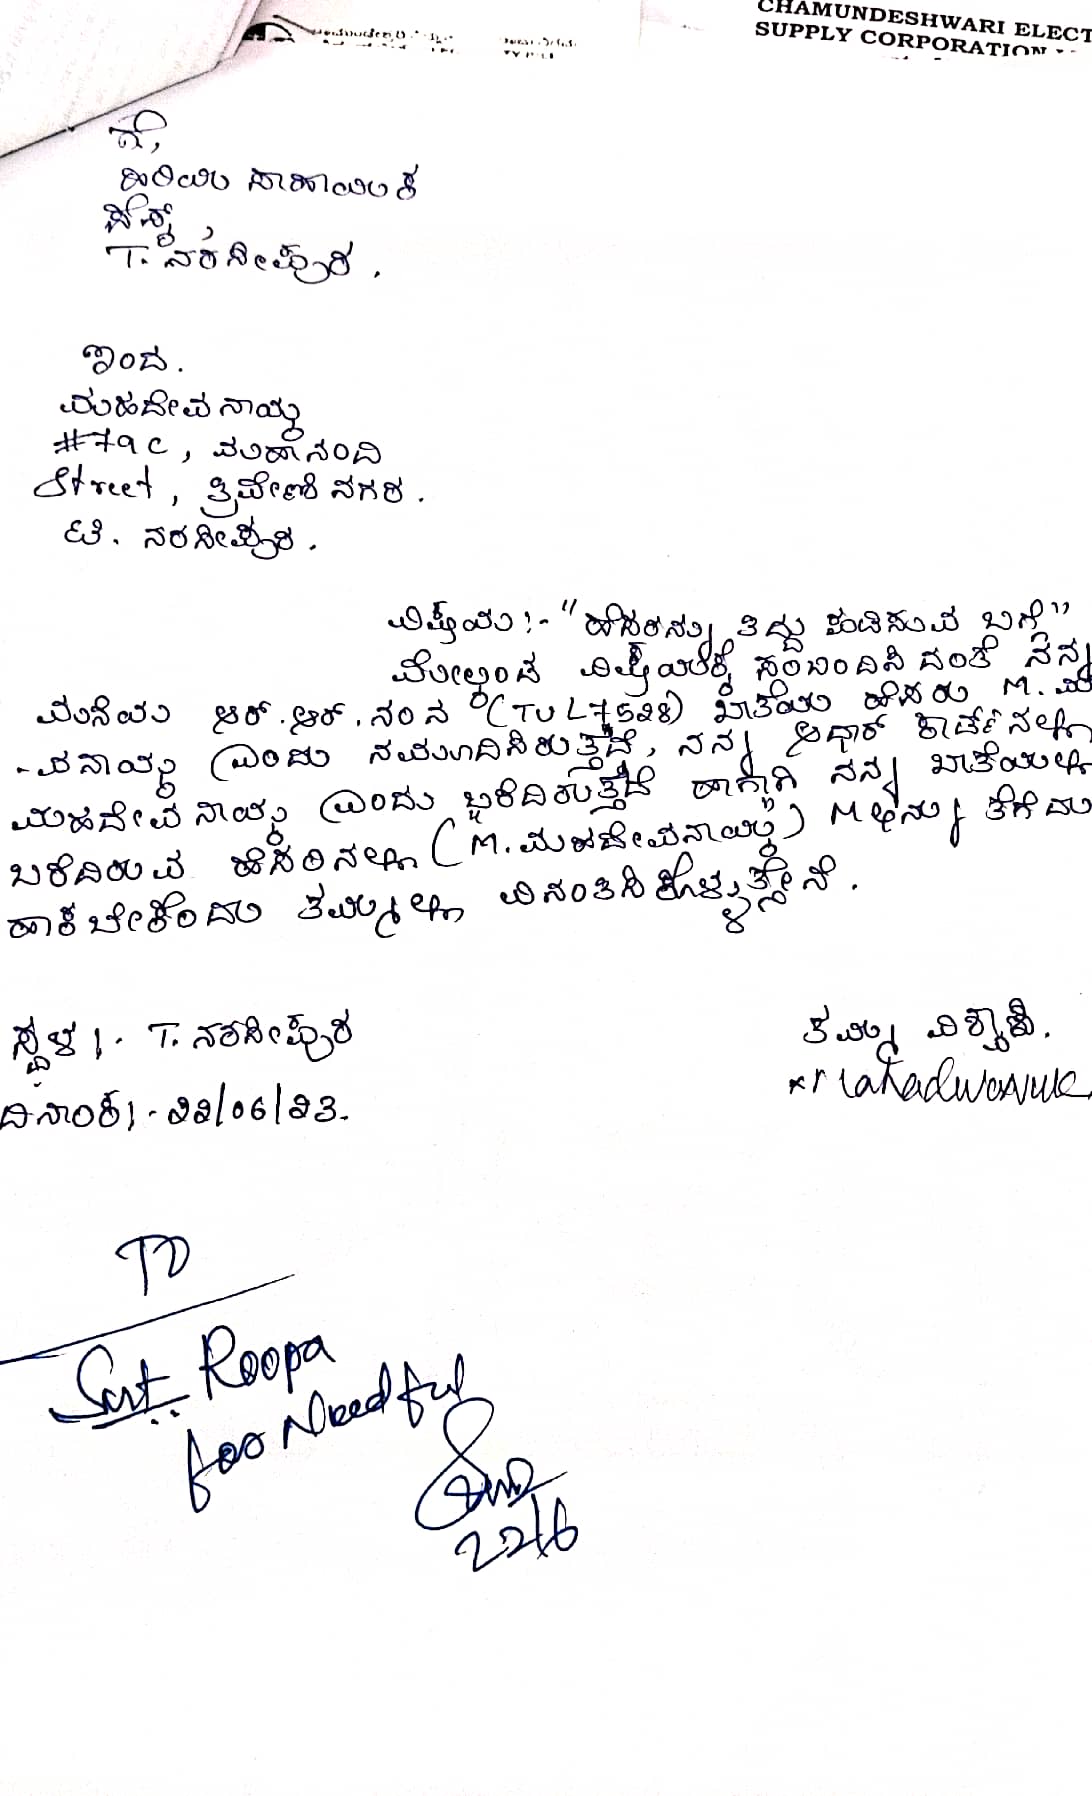 CHAMUNDESHWARI ELECT
SUPPLY CORPORATION
ಗೆ,
ಹಿರಿಯ ಸಾಹಾಯಕ
ಸೆಸ್ಕ್,
T. ನರಸೀಪುರ.
ಇಂದ.
ಮಹದೇವನಾಯ್ಕ
#79c, ಮಹಾನಂದಿ
Street, ತ್ರಿವೇಣಿ ನಗರ.
ಟಿ. ನರಸೀಪುರ.
ವಿಷಯ:- "ಹೆಸರನ್ನು ತಿದ್ದು ಪಡಿಸುವ ಬಗ್ಗೆ"
ಮೇಲ್ಕಂಡ ವಿಷಯಕ್ಕೆ ಸಂಬಂದಿಸಿದಂತೆ ನನ್ನ
ಮನೆಯ ಆರ್.ಆರ್.ನಂನ (TUL7528) ಖಾತೆಯ ಹೆಸರು M. ಮ
-ವನಾಯ್ಕ ಎಂದು ನಮೂದಿಸಿರುತ್ತದೆ, ನನ್ನ ಆಧಾರ್ ಕಾರ್ಡಿನಲ್ಲಿ
ಮಹದೇವನಾಯ್ಕ ಎಂದು ಬರೆದಿರುತ್ತದೆ ಹಾಗಾಗಿ ನನ್ನ ಖಾತೆಯಲ್ಲಿ
ಬರೆದಿರುವ ಹೆಸರಿನಲ್ಲಿ (M.ಮಹದೇವನಾಯ್ಕ) Mಅನ್ನು ತೆಗೆದು
ಹಾಕಬೇಕೆಂದು ತಮ್ಮಲ್ಲಿ ವಿನಂತಿಸಿಕೊಳ್ಳುತ್ತೇನೆ.
ಸ್ಥಳ:- T. ನರಸೀಪುರ
ತಮ್ಮ ವಿಶ್ವಾಸಿ.
ದಿನಾಂಕ:- 22/06/23.
TO
Smt. Roopa
for Needful
22/6